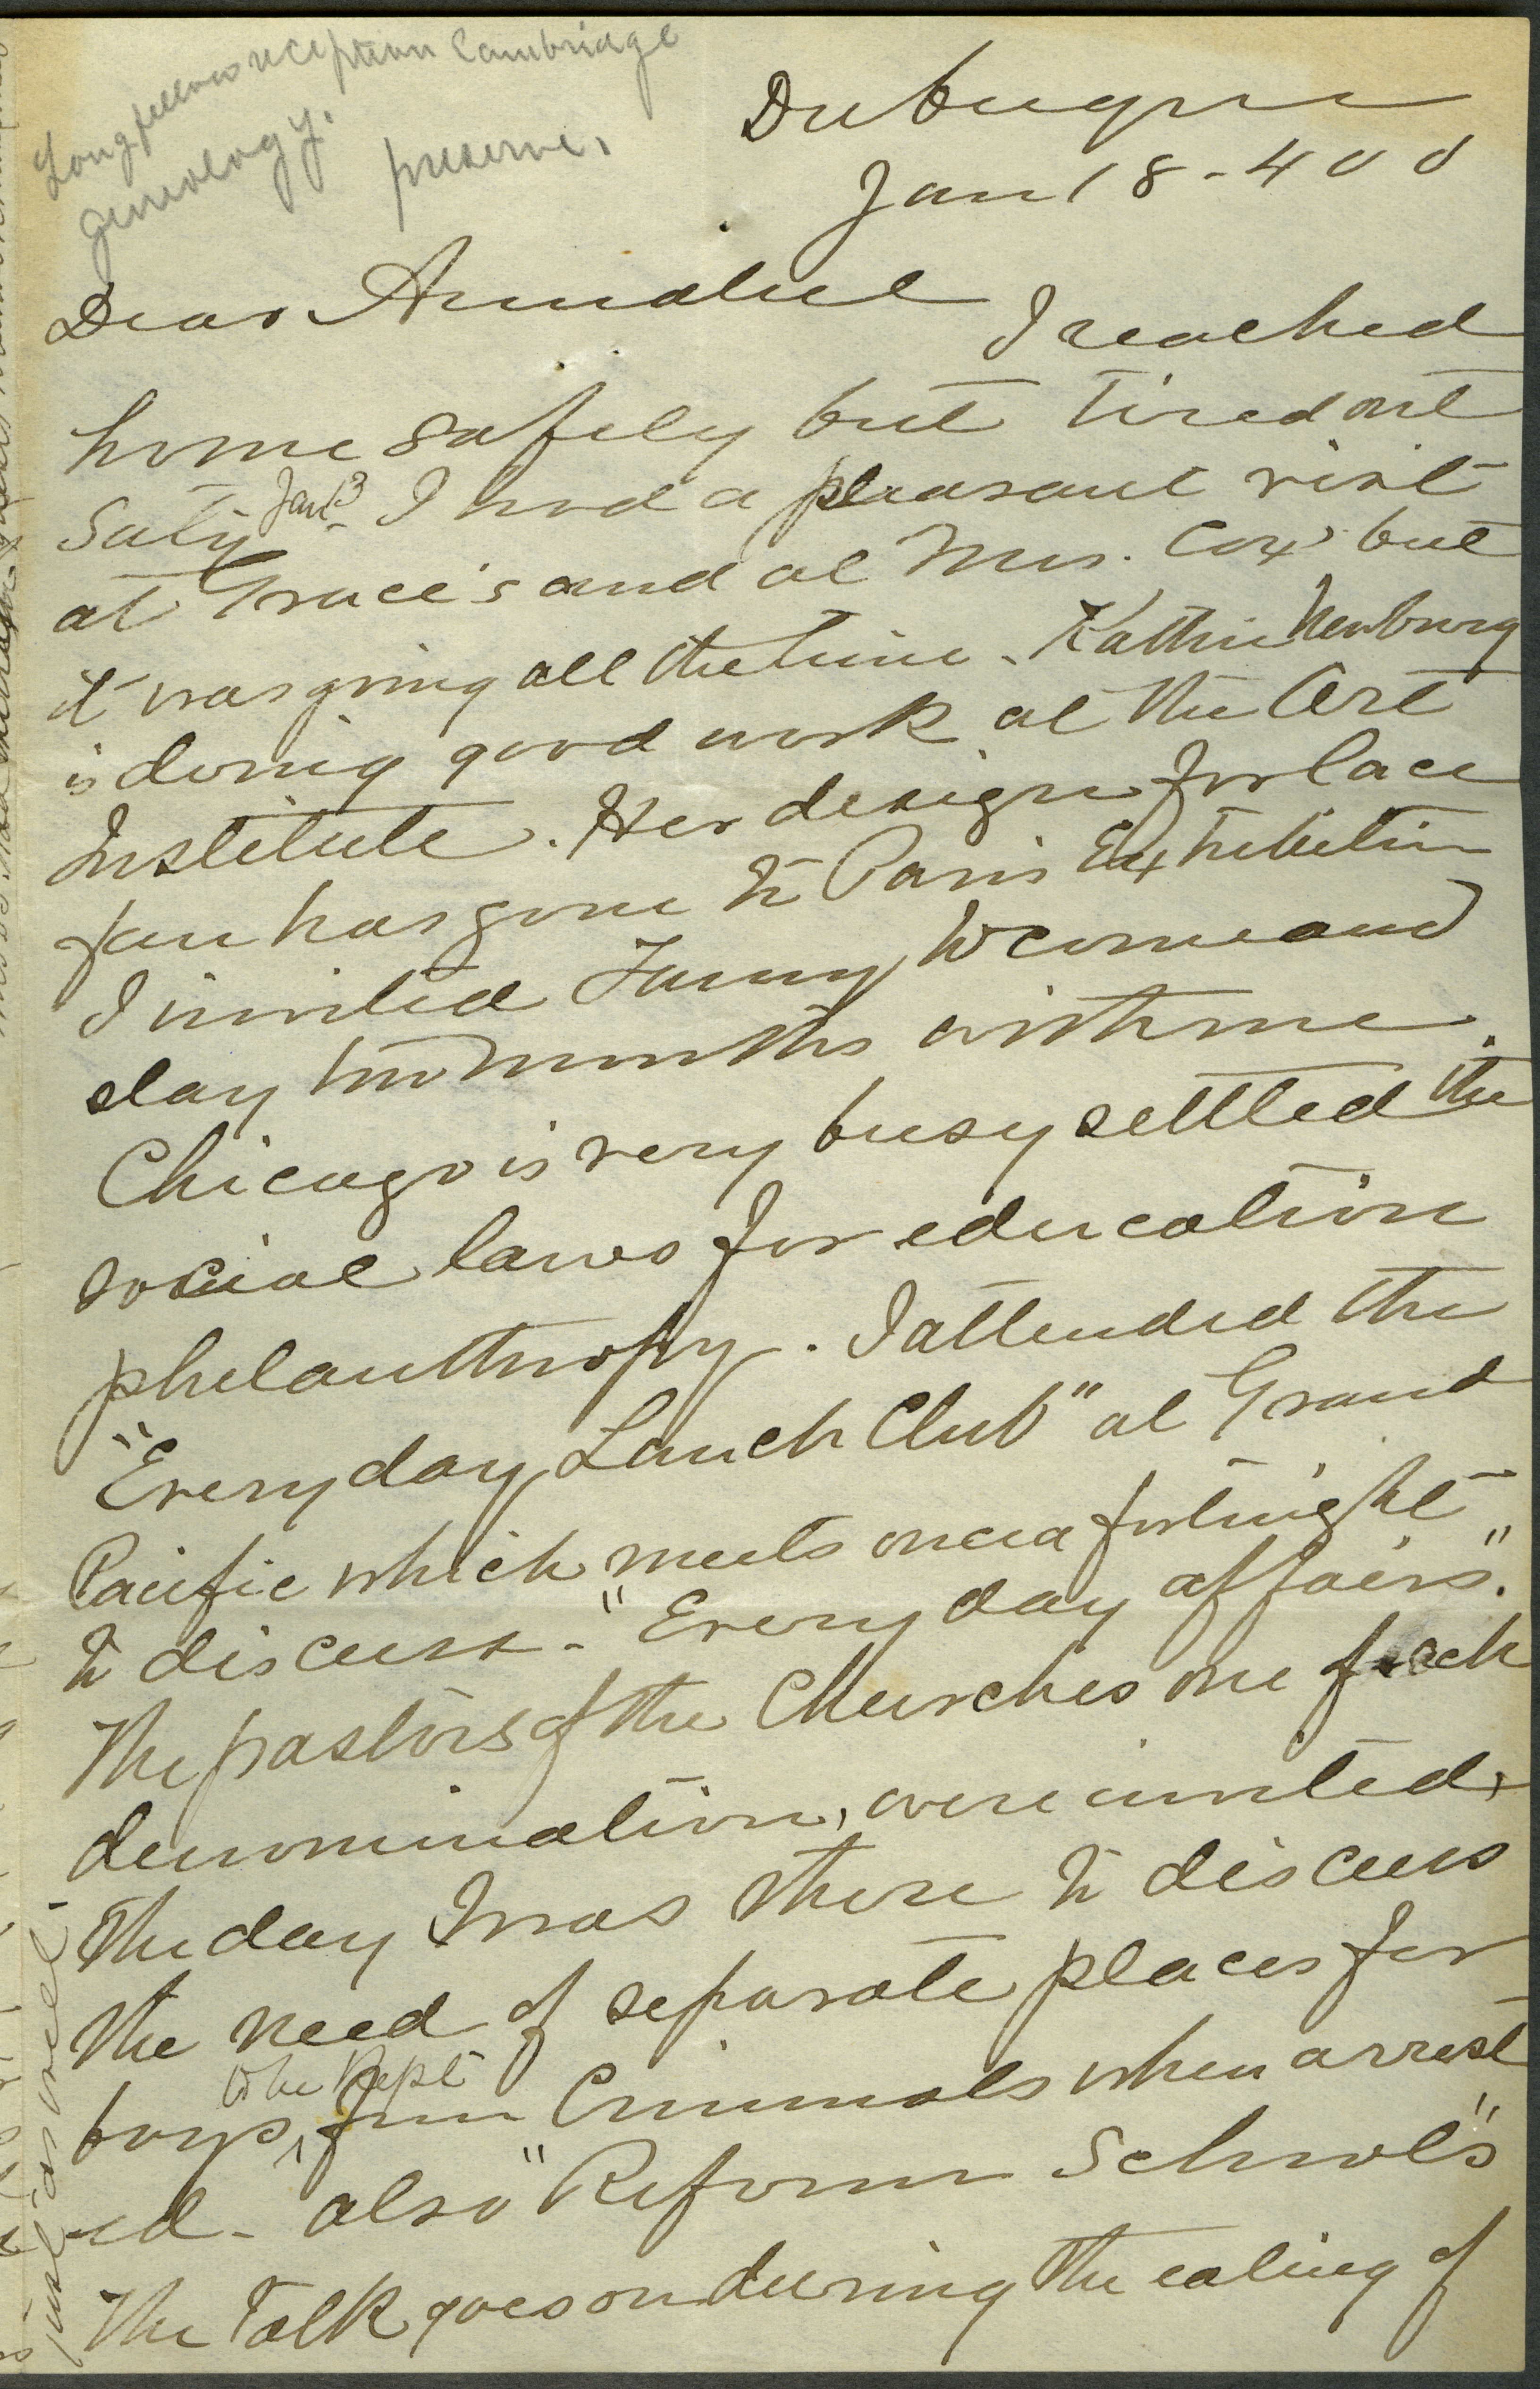 Longfellow reception Cambridge
geneology.
preserve.
Dubuque
Jan 18 - 400
Dear Annabel
I reached
home safely but tired out
Saty Jan 13 - I had a pleasant visit
at Grace's and at Mrs. Cox' but
it was going all the time - Kathrine Newburg
is doing good work at the Art
Institute. Her design for lace
fan has gone to Paris Exhibition
I invited Fanny to come and
stay two months with me.
Chicago is very busy settled the
social laws for education
philanthropy. I attended the
"Every day Lunch Club" at Grand
Pacific which meets once a fortnight
to discuss - "Every day affairs."
The pastors of the Churches one of each
denomination, were invited,
the day I was there to discuss
the need of separate places for
to be kept
boys ^ from Criminals when arrest
-ed - also "Reform Schools"
The talk goes on during the eating of
just as well -